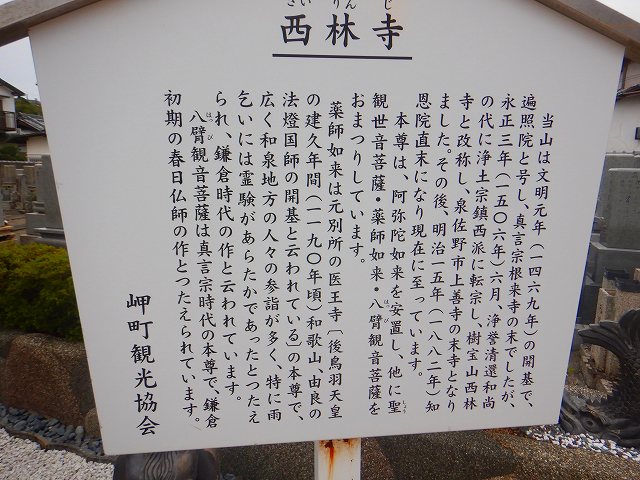 さいりんじ
西林寺
当山は文明元年（一四六九年）の開基で、
遍照院と号し、真言宗根来寺の末でしたが、
永正三年（一五〇六年）六月、浄誉清還和尚
の代に浄土宗鎮西派に転宗し、樹宝山西林
寺と改称し、泉佐野市上善寺の末寺となり
ました。その後、明治一五年（一八八二年）知
恩院直末になり現在に至っています。
本尊は、阿弥陀如来を安置し、他に聖
観世音菩薩・薬師如来・八臂観音菩薩を
おまつりしています。
薬師如来は元別所の医王寺〔後鳥羽天皇
の建久年間（一一九〇年頃）和歌山、由良の
法燈国師の開基と云われている〕の本尊で、
広く和泉地方の人々の参詣が多く、特に雨
乞いには霊験があらたかであったとつたえ
られ、鎌倉時代の作と云われています。
八臂観音菩薩は真言宗時代の本尊で、鎌倉
初期の春日仏師の作とつたえられています。
岬町観光協会